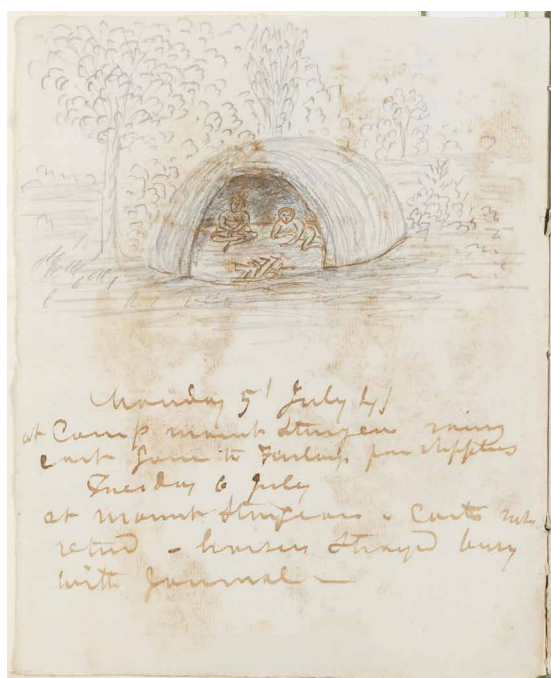 Monday 5' July 41
at Camp mount Sturgeon rainy
cart gone to for supplies
Tuesday 6 July
at mount Sturgeon - Carts not
retnd - horses Strayd busy
with Journal -